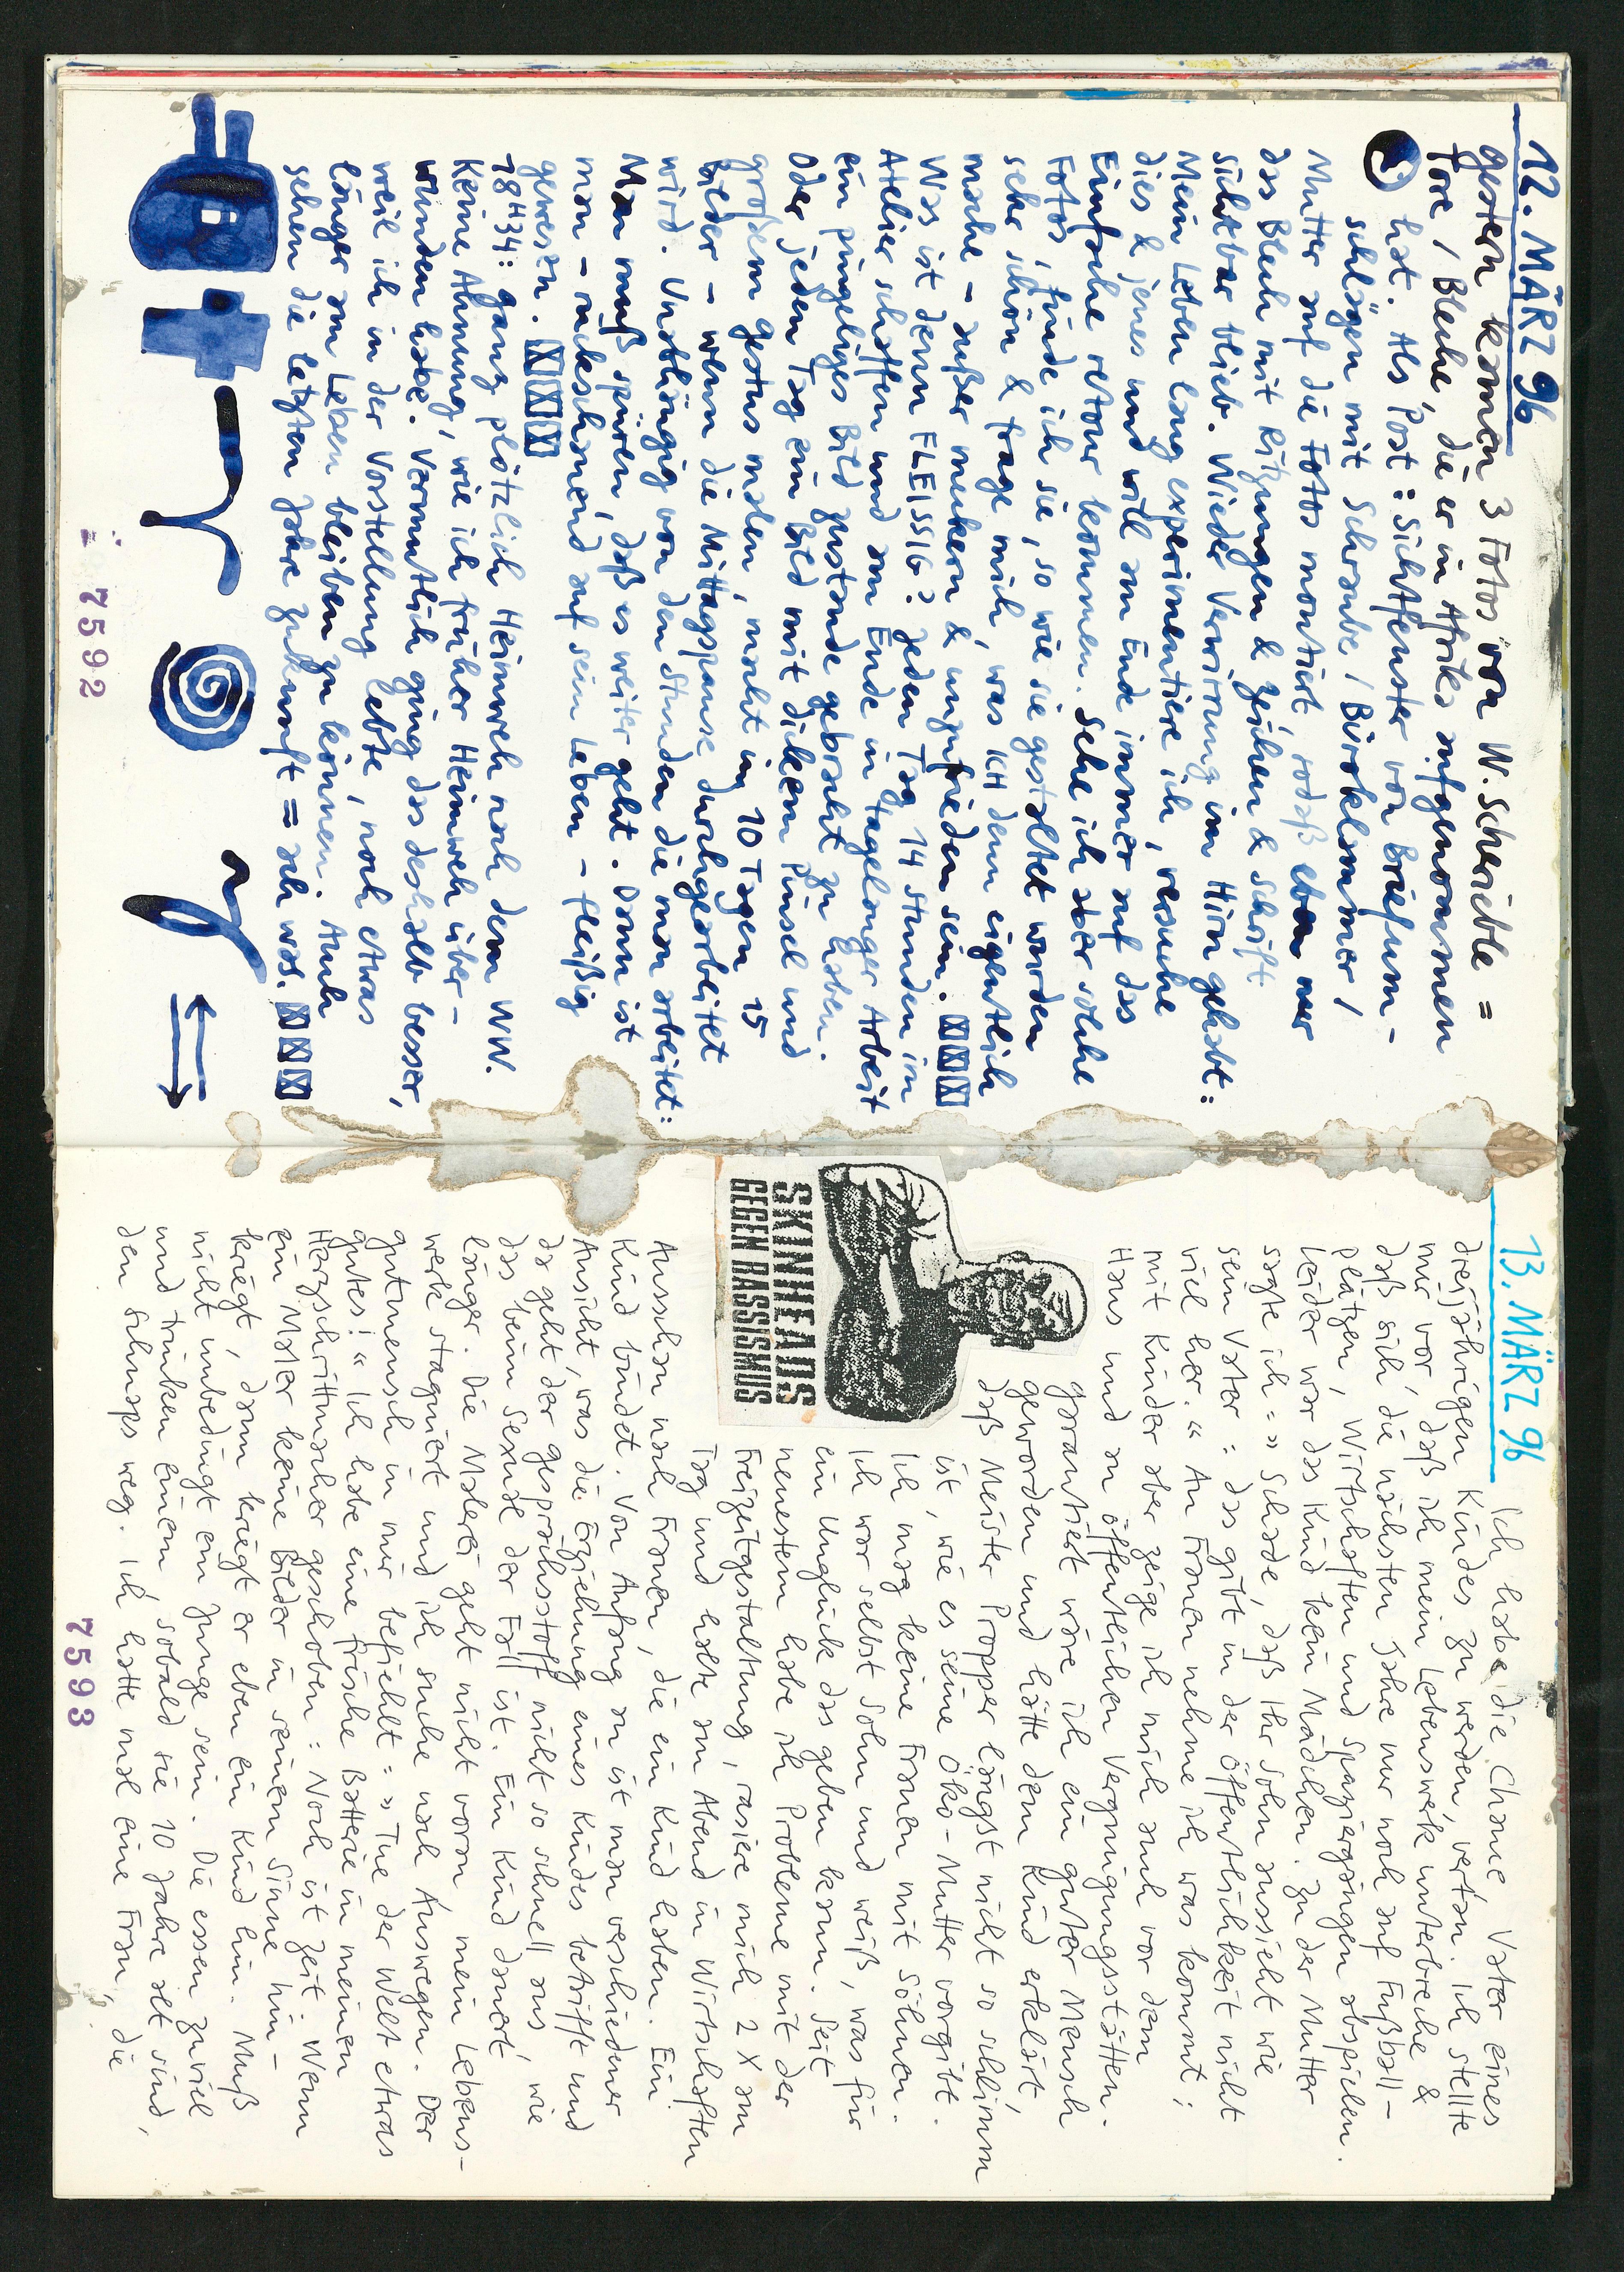 12. MÄRZ 96
gestern kamen 3 Fotos von W. Scherieble =
Tore / Bleche, die er in Afrika aufgenommen
hat. Als Post: Sichtfenster von Briefum-
schlägen mit Schraube / Büroklammer /
Mutter auf die Fotos montiert, sodaß eben nur
das Blech mit Ritzungen & Zeichen & Schrift
sichtbar blieb. Wieder Verwirrung im Hirn gehabt:
Mein Leben lang experimentiere ich, versuche
dies & jenes und will am Ende immer auf das
Einfache retour kommen. Sehe ich aber solche
Fotos, finde ich sie, so wie sie gestaltet wurden
sehr schön & frage mich, was ICH denn eigentlich
mache - außer meckern & unzufrieden sein.
Was ist denn FLEISSIG? Jeden Tag 14 Stunden im
Atelier schaffen und am Ende in tagelanger Arbeit
ein pingeliges Bild zustande gebracht zu haben.
Oder jeden Tag ein Bild mit dickem Pinsel und
großem Gestus malen, macht in 10 Tagen 15
Bilder - wenn die Mittagspause durchgearbeitet
wird. Unabhängig von den Stunden die man arbeitet:
Man muß spüren, daß es weiter geht. Dann ist
man - rückschauend auf sein Leben - fleißig
gewesen.
18H34: ganz plötzlich Heimweh nach dem WW.
Keine Ahnung, wie ich früher Heimweh über-
wunden habe. Vermutlich ging das deshalb besser,
weil ich in der Vorstellung lebte, noch etwas
länger am Leben bleiben zu können. Auch
sehen die letzten Jahre Zukunft = ach was.
7592
13. MÄRZ 96
Ich habe die Chance, Vater eines
dreijährigen Kindes zu werden, vertan. Ich stellte
mir vor, daß ich mein Lebenswerk unterbreche &
daß sich die nächsten Jahre nur noch auf Fußball-
plätzen, Wirtschaften und Spaziergängen abspielen.
Leider war das Kind kein Mädchen. Zu der Mutter
sagte ich: » Schade, daß Ihr Sohn aussieht wie
sein Vater: das gibt in der Öffentlichkeit nicht
viel her. « An Frauen nehme ich was kommt;
mit Kinder aber zeige ich mich auch vor dem
Haus und an öffentlichen Vergnügungsstätten.
Garantiert wäre ich ein guter Mensch
geworden und hätte dem Kind erklärt,
daß Meister Propper längst nicht so schlimm
ist, wie es seine Öko-Mutter vorgibt.
Ich mag keine Frauen mit Söhnen.
Ich war selbst Sohn und weiß, was für
ein Unglück das geben kann. Seit
neuestem habe ich Probleme mit der
Freizeitgestaltung, rasiere mich 2 X am
Tag und halte am Abend in Wirtschaften
Ausschau nach Frauen, die ein Kind haben. Ein
Kind bindet. Von Anfang an ist man verschiedener
Ansicht, was die Erziehung eines Kindes betrifft und
da geht der Gesprächsstoff nicht so schnell aus, wie
das beim Sexual der Fall ist. Ein Kind dauert
länger. Die Malerei geht nicht voran, mein Lebens-
werk stagniert und ich suche nach Auswegen. Der
Gutmensch in mir befiehlt: » Tue der Welt etwas
gutes! « Ich habe eine frische Batterie in meinen
Herzschrittmacher geschoben: Noch ist Zeit. Wenn
ein Maler keine Bilder in seinem Sinne hin-
kriegt, dann kriegt er eben ein Kind hin. Muß
nicht unbedingt ein Junge sein. Die essen zuviel
und trinken einem, sobald sie 10 Jahre alt sind,
den Schnaps weg. Ich hatte mal eine Frau, die
SKINHEADS
GEGEN RASSISMUS
7593